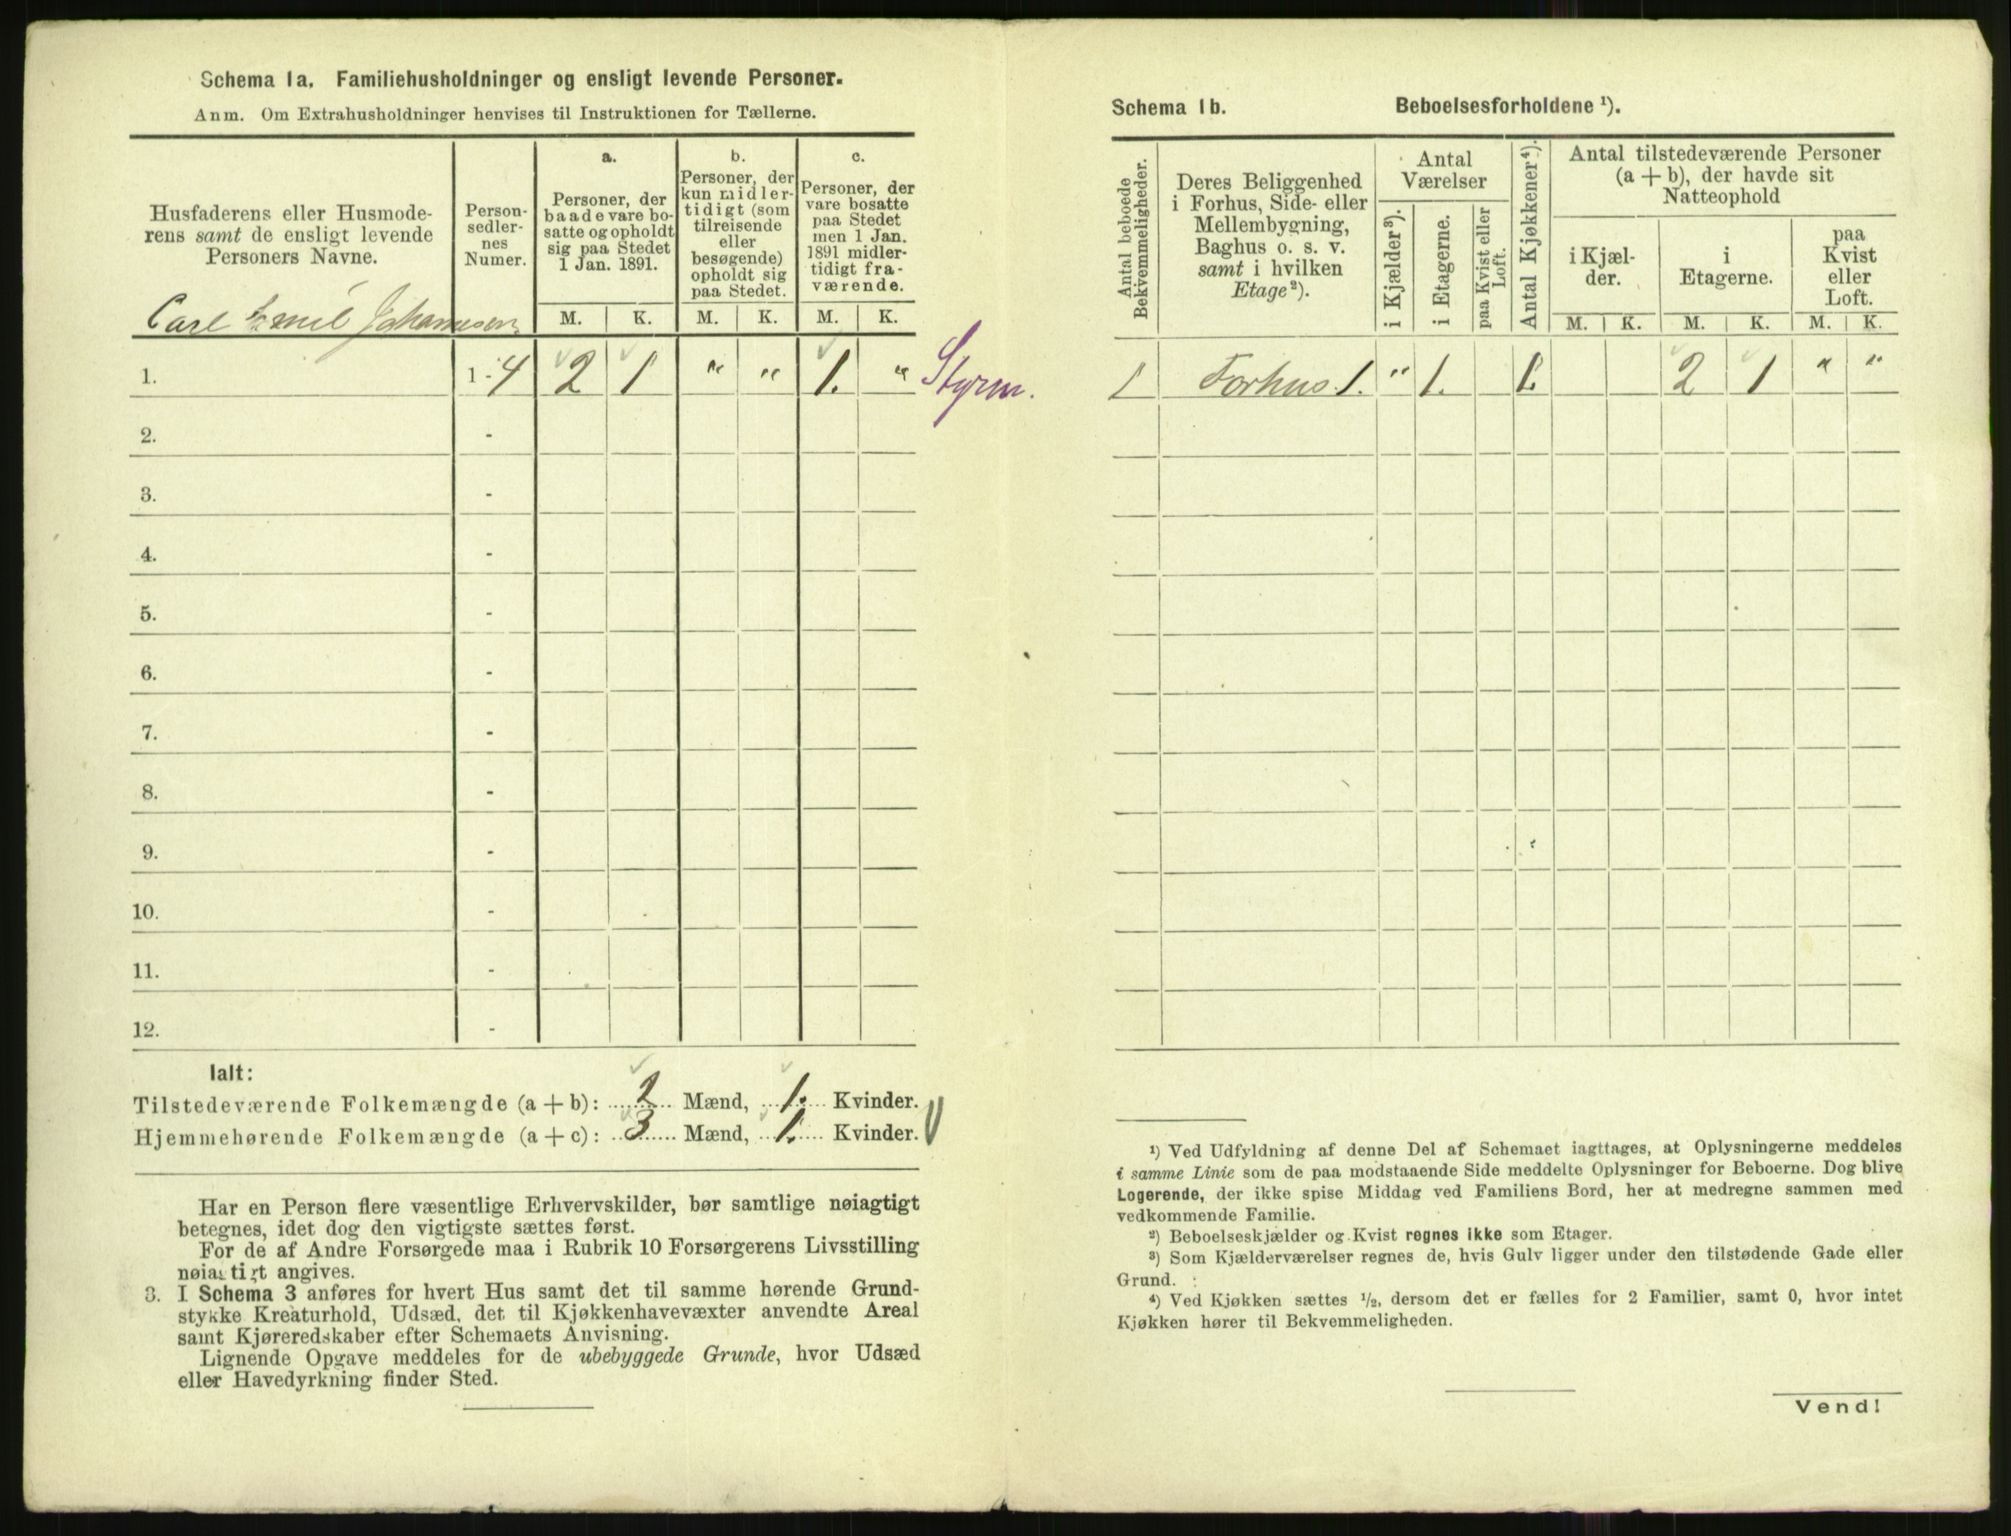 Schema 1a. Familiehusholdninger og ensligt levende Personer.
Anm. Om Extrahusholdninger henvises til Instruktionen for Tællerne.
Husfaderens eller Husmode-
rens samt de ensligt levende
Personers Navne.
Person-
sedler-
nes
Numer.
a.
Personer, der
baade vare bo-
satte og opholdt
sig paa Stedet
1 Jan. 1891.
b.
Personer, der
kun midler-
tidigt (som
tilreisende
eller
besøgende)
opholdt sig
paa Stedet.
c.
Personer, der
vare bosatte
paa Stedet
men 1 Jan.
1891 midler-
tidigt fra-
værende.
M. K. M. K. M. K.
Carl Emil Johannesen
1. 1-4 2 1 " " 1. " Styrm.
2. -
3. -
4. -
5. -
6. -
7. -
8. -
9. -
10. -
11. -
12. -
Ialt:
Tilstedeværende Folkemængde (a + b): 2 Mænd, 1. Kvinder.
Hjemmehørende Folkemængde (a + c): 3 Mænd, 1. Kvinder.
Har en Person flere væsentlige Erhvervskilder, bør samtlige nøiagtigt
betegnes, idet dog den vigtigste sættes først.
For de af Andre Forsørgede maa i Rubrik 10 Forsørgerens Livsstilling
nøiagtigt angives.
3. I Schema 3 anføres for hvert Hus samt det til samme hørende Grund-
stykke Kreaturhold, Udsæd, det til Kjøkkenhavevæxter anvendte Areal
samt Kjøreredskaber efter Schemaets Anvisning.
Lignende Opgave meddeles for de ubebyggede Grunde, hvor Udsæd
eller Havedyrkning finder Sted.
Schema 1b. Beboelsesforholdene ¹).
Antal beboede
Bekvemmeligheder.
Deres Beliggenhed
i Forhus, Side- eller
Mellembygning,
Baghus o. s. v.
samt i hvilken
Etage²).
Antal
Værelser
i Kjælder³).
i Etagerne.
paa Kvist eller
Loft.
Antal Kjøkkener⁴).
Antal tilstedeværende Personer
(a + b), der havde sit
Natteophold
i Kjæl-
der.
i
Etagerne.
paa
Kvist
eller
Loft.
M. K. M. K. M. K.
1 Forhus 1. " 1. 1. 2 1 " "
¹) Ved Udfyldning af denne Del af Schemaet iagttages, at Oplysningerne meddeles
i samme Linie som de paa modstaaende Side meddelte Oplysninger for Beboerne. Dog blive
Logerende, der ikke spise Middag ved Familiens Bord, her at medregne sammen med
vedkommende Familie.
²) Beboelseskjælder og Kvist regnes ikke som Etager.
³) Som Kjælderværelser regnes de, hvis Gulv ligger under den tilstødende Gade eller
Grund.
⁴) Ved Kjøkken sættes ½, dersom det er fælles for 2 Familier, samt 0, hvor intet
Kjøkken hører til Bekvemmeligheden.
Vend!